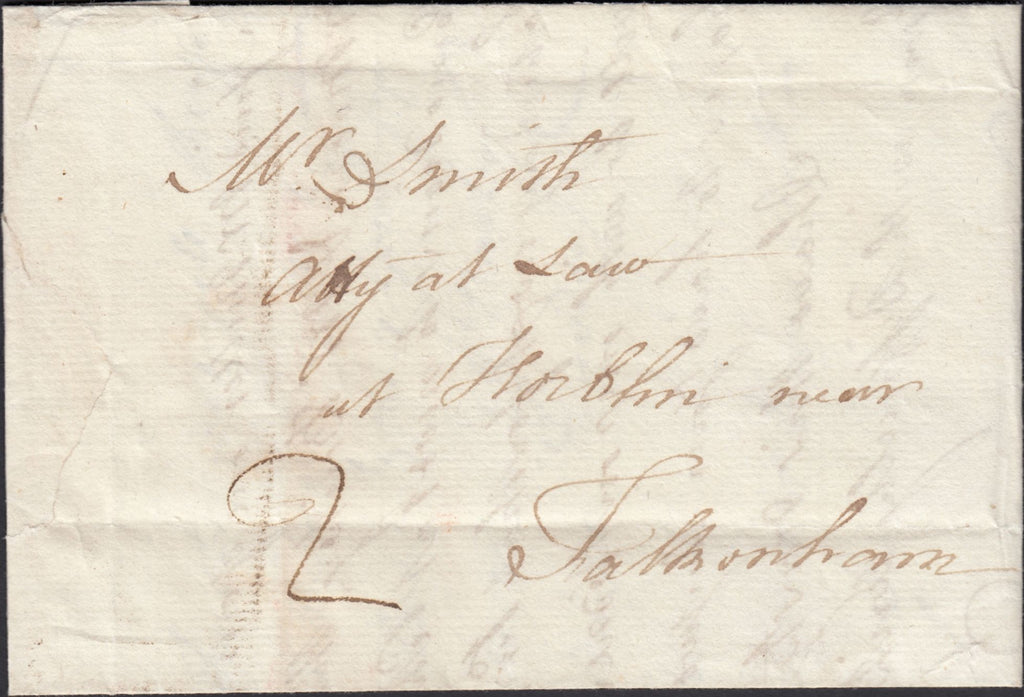 Mr. Smith
Atty at Law
at Horblin near
2 Falkonham